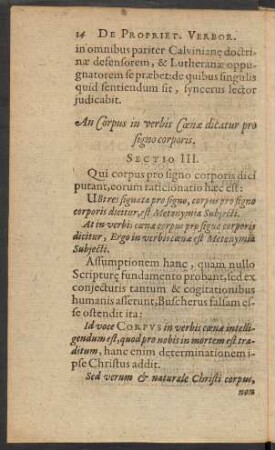 14 DE PROPRIET. VERBOR.
in omnibus pariter Calvinianę doctri-
næ defensorem, & Lutheranæ oppu-
gnatorem se præbet: de quibus singulis
quid sentiendum sit, syncerus lector
judicabit.
An Corpus in verbis Cœnæ dicatur pro
signo corporis.
SECTIO III.
Qui corpus pro signo corporis dici
putant, eorum ratiocinatio hæc est:
Ubi res signata pro signo, corpus pro signo
corporis dicitur, est Metonymia Subjecti.
At in verbis cœnæ corpus pro signo corporis
dicitur, Ergo in verbis cœnæ est Metonymia
Subjecti.
Assumptionem hanc, quam nullo
Scripturę fundamento probant, sed ex
conjecturis tantum & cogitationibus
humanis asserunt, Buscherus falsam es-
se ostendit ita:
Id voce CORPVS in verbis cœnæ intelli-
gendum est, quod pro nobis in mortem est tra-
ditum, hanc enim determinationem i-
pse Christus addit.
Sed verum & naturale Christi corpus,
non